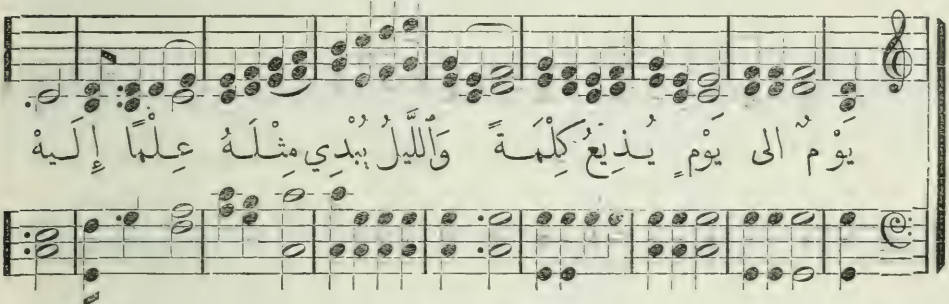 يَوْمٌ الى يَوْمٍ يُذِيعُ كِلْمَةً وَٱللَّيْلُ يُبْدِي مِثْلَهُ عِلْمًا إِلَيهْ